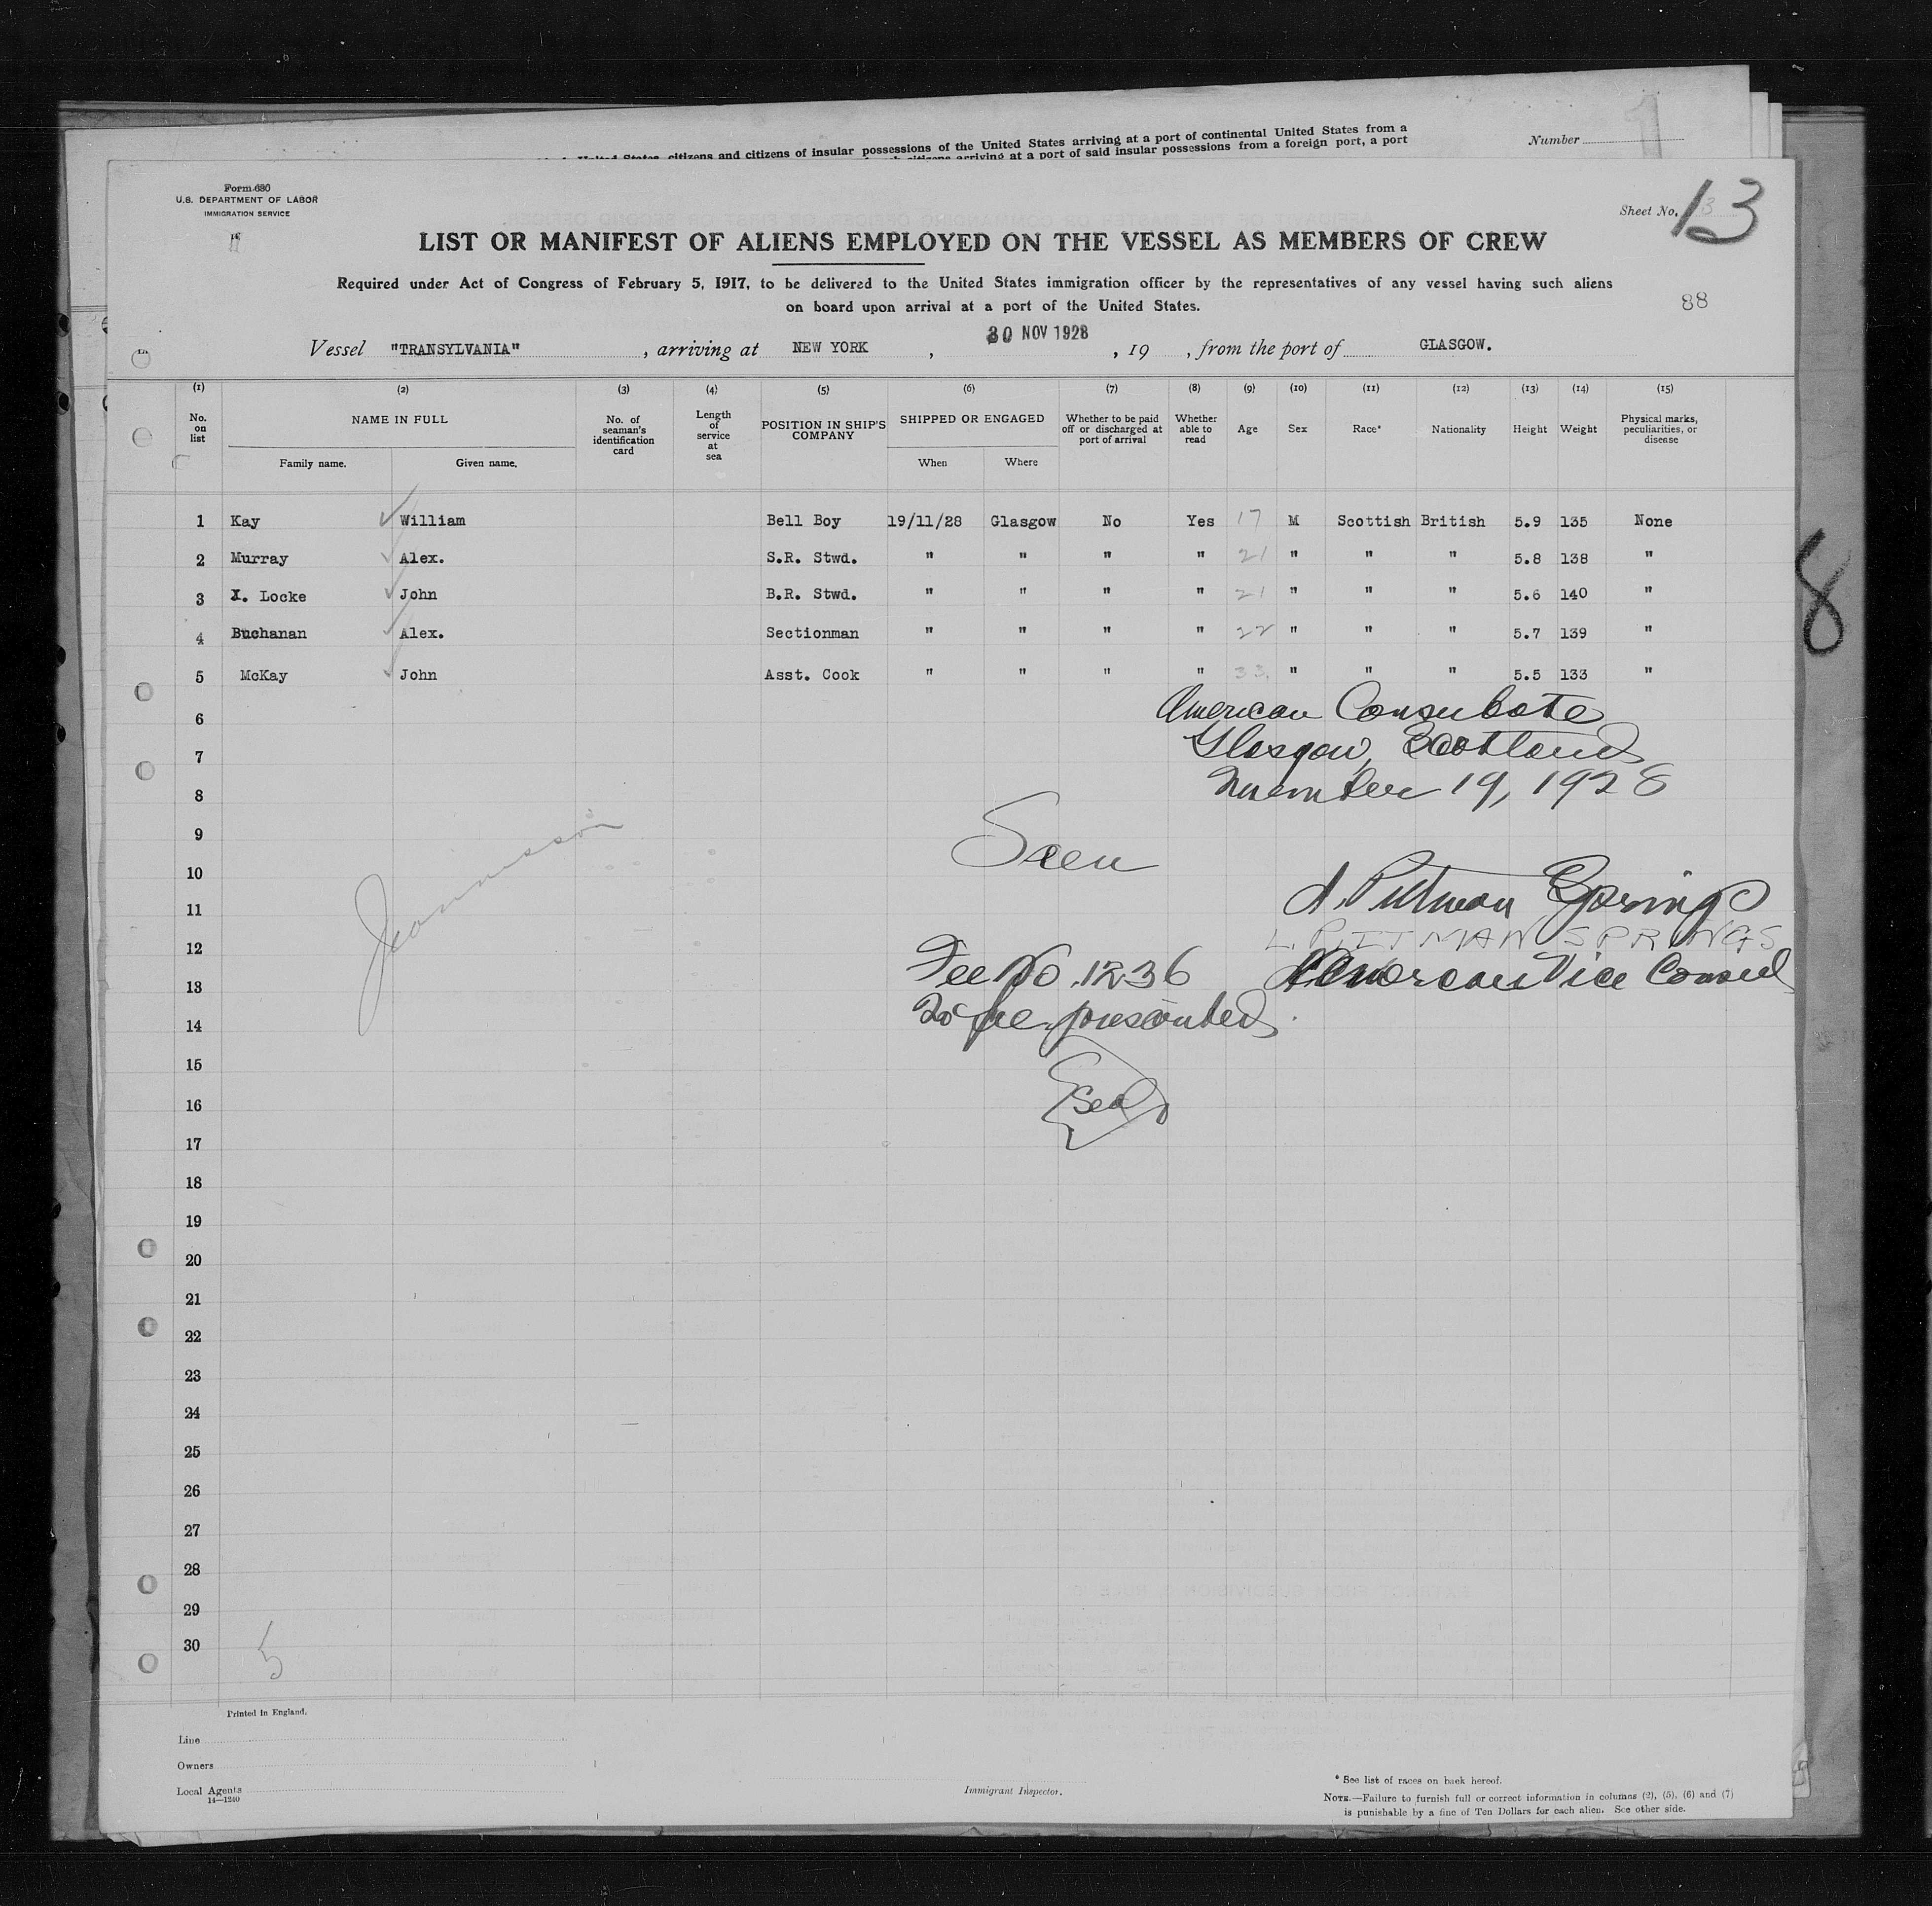 United States, citizens and citizens of insular possessions of the United States arriving at a port of continental United States from a
citizens arriving at a port of said insular possessions from a foreign port, a port
Number
Form 680
U.S. DEPARTMENT OF LABOR
IMMIGRATION SERVICE
Sheet No. 13
LIST OR MANIFEST OF ALIENS EMPLOYED ON THE VESSEL AS MEMBERS OF CREW
Required under Act of Congress of February 5, 1917, to be delivered to the United States immigration officer by the representatives of any vessel having such aliens
on board upon arrival at a port of the United States.
88
Vessel "TRANSYLVANIA" , arriving at NEW YORK , 30 NOV 1928 , 19 , from the port of GLASGOW.
(1) (2) (3) (4) (5) (6) (7) (8) (9) (10) (11) (12) (13) (14) (15)
No. on list NAME IN FULL No. of seaman's identification card Length of service at sea POSITION IN SHIP'S COMPANY SHIPPED OR ENGAGED Whether to be paid off or discharged at port of arrival Whether able to read Age Sex Race* Nationality Height Weight Physical marks, peculiarities, or disease
Family name. Given name. When Where
1 Kay William Bell Boy 19/11/28 Glasgow No Yes 17 M Scottish British 5.9 135 None
2 Murray Alex. S.R. Stwd. " " " " 21 " " " 5.8 138 "
3 I. Locke John B.R. Stwd. " " " " 21 " " " 5.6 140 "
4 Buchanan Alex. Sectionman " " " " 22 " " " 5.7 139 "
5 McKay John Asst. Cook " " " " 33 " " " 5.5 133 "
8
American Consulate
6
Glasgow, Scotland
7
November 19, 1928
8
9
Seen
10
11
12
L. PITTMAN SPRINGS
Fee No. 1236 American Vice Consul
13
No fee presented
14
15
Seal
16
17
18
19
20
21
22
23
24
25
26
27
28
29
30
5
Printed in England.
Line
Owners
Local Agents
14—1240
Immigrant Inspector.
* See list of races on back hereof.
NOTE.—Failure to furnish full or correct information in columns (2), (5), (6) and (7)
is punishable by a fine of Ten Dollars for each alien. See other side.